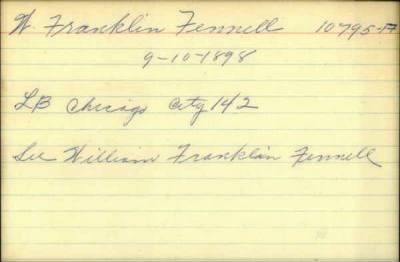 W. Franklin Fennell 10795-A
9-10-1898
LB Chicago City 142
See William Franklin Fennell